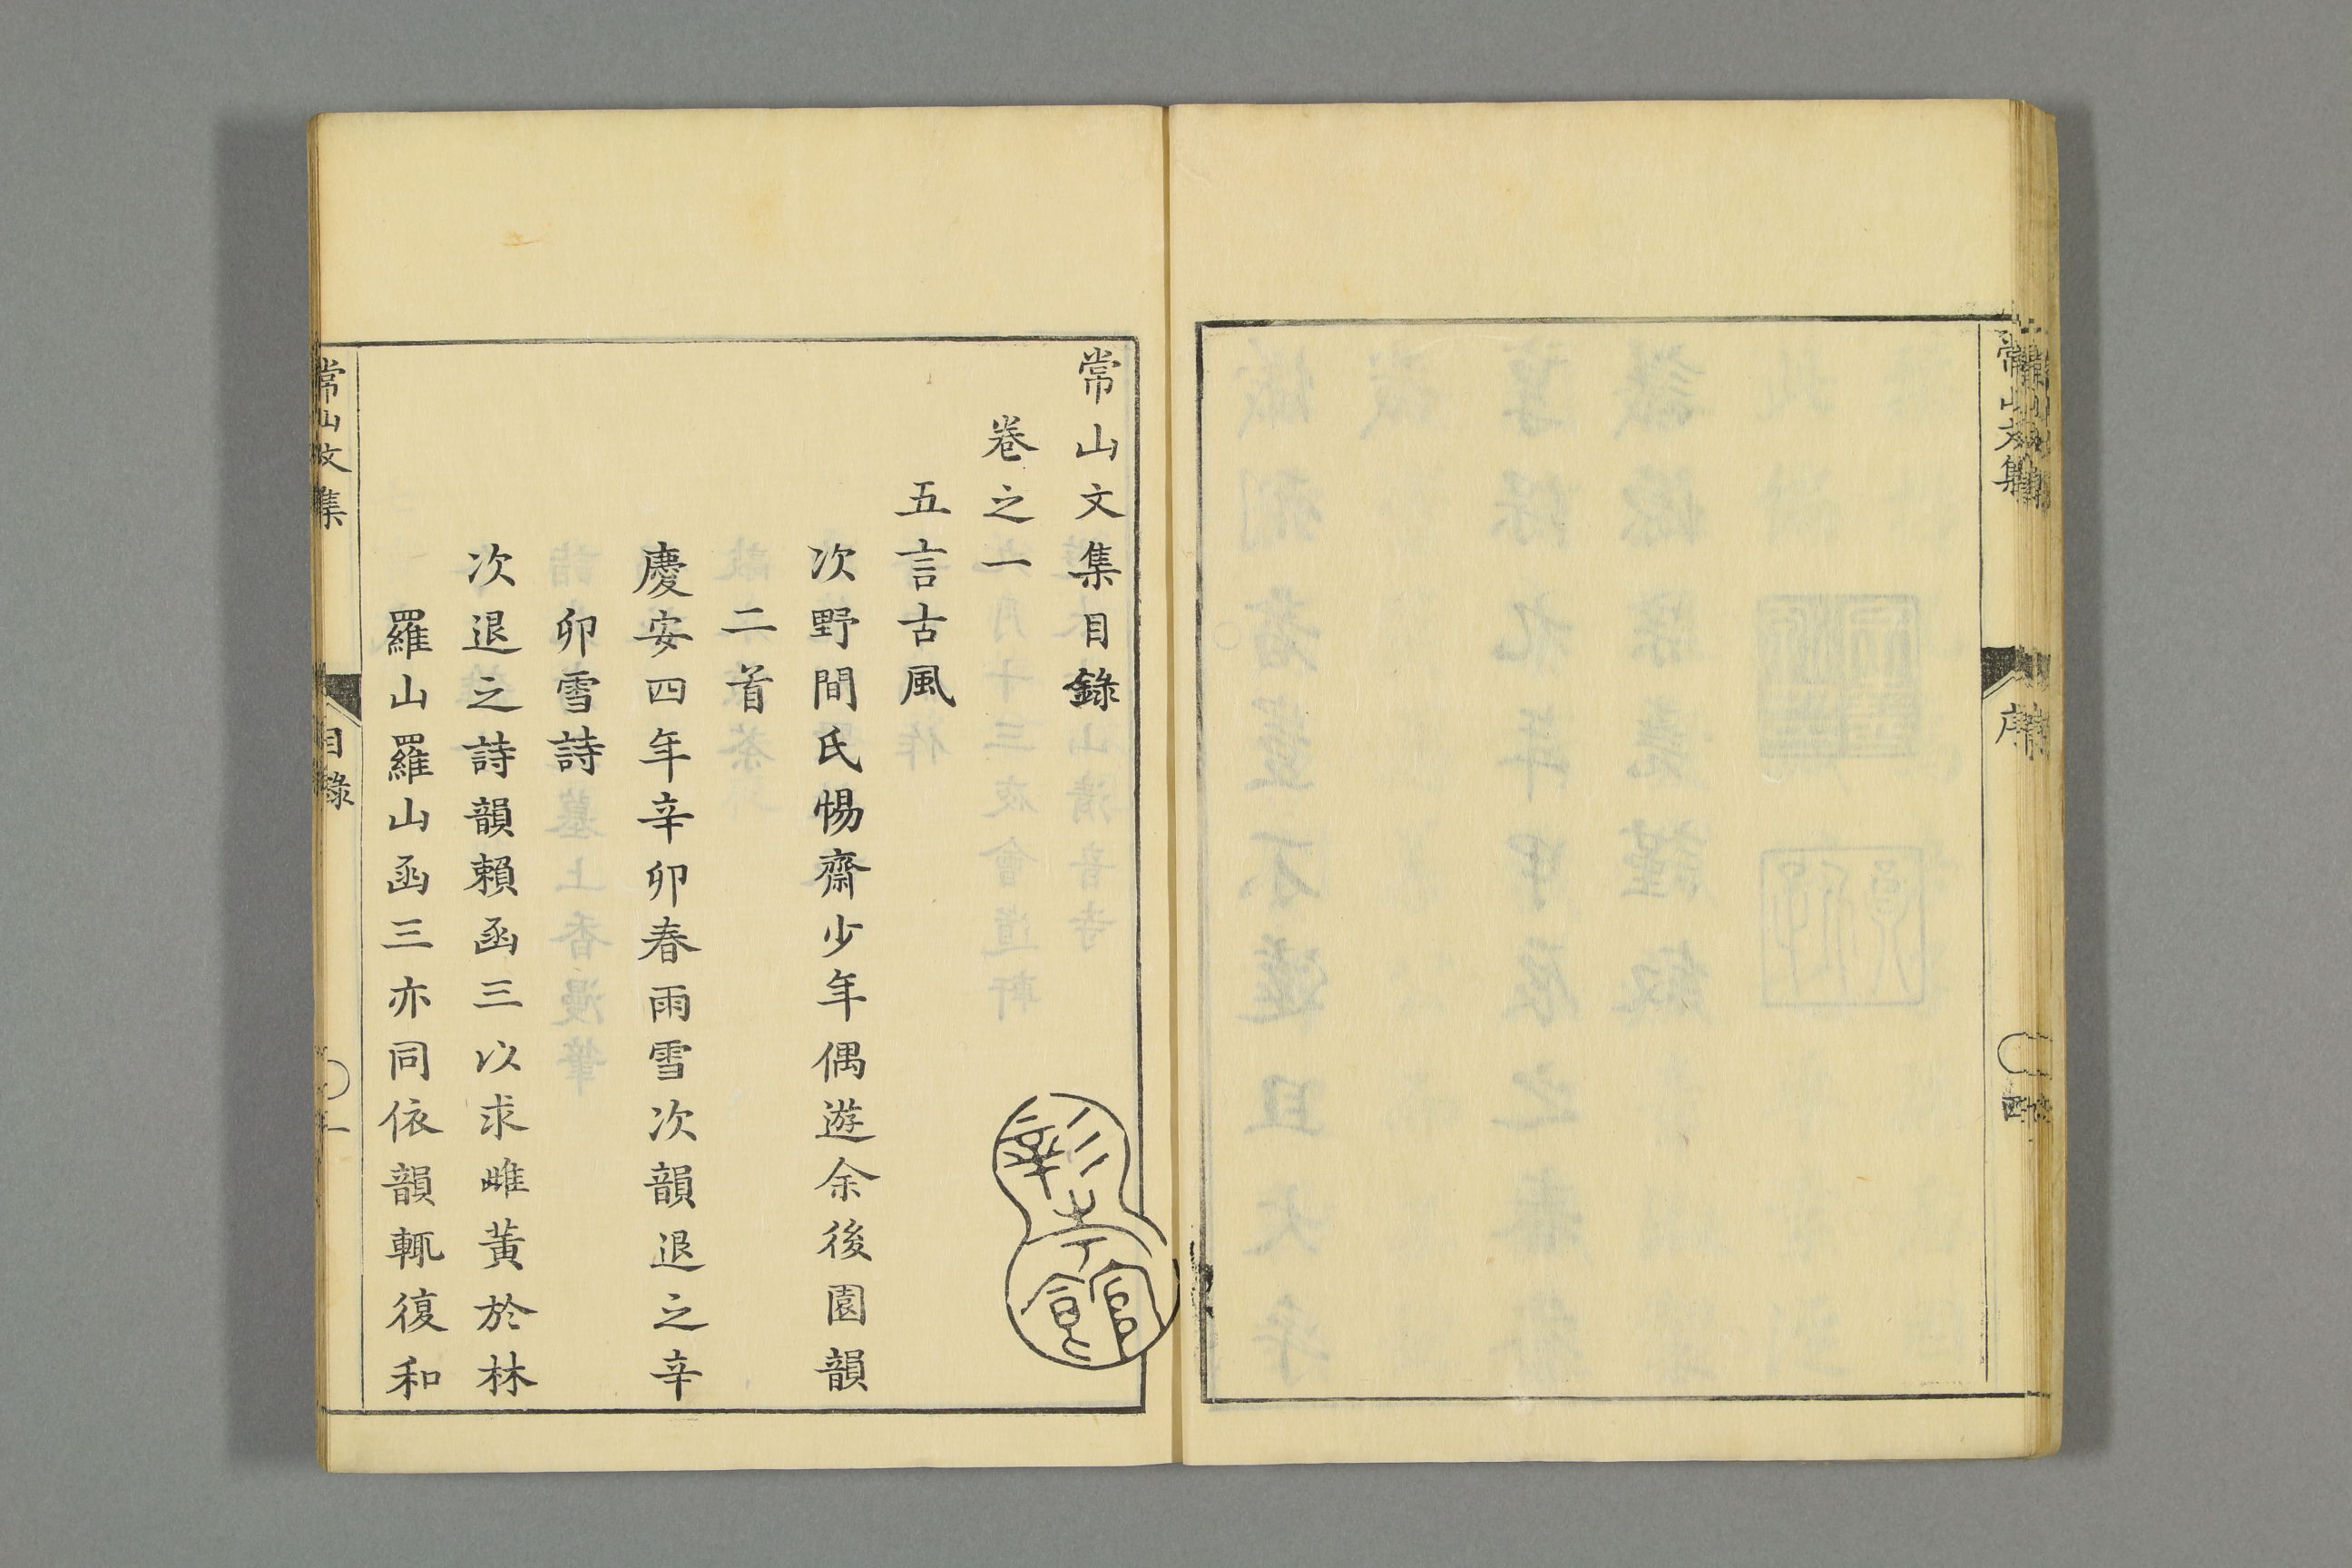 常山文集
序
四
常山文集目錄
卷之一
五言古風
次野間氏惕齋少年偶遊余後園韻
二首
慶安四年辛卯春雨雪次韻退之辛
卯雪詩
次退之詩韻賴函三以求雌黃於林
羅山羅山函三亦同依韻輒復和
彰考館
常山文集
目錄